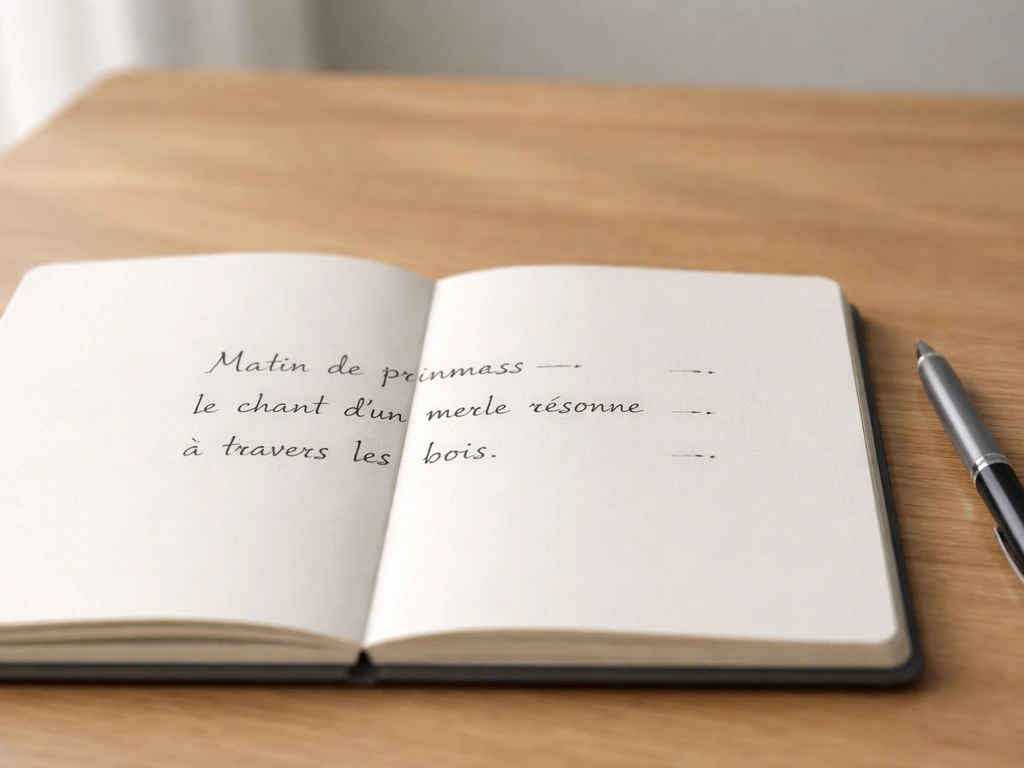 Matin de prinmass —.
le chant d'un merle résonne
à travers les bois.